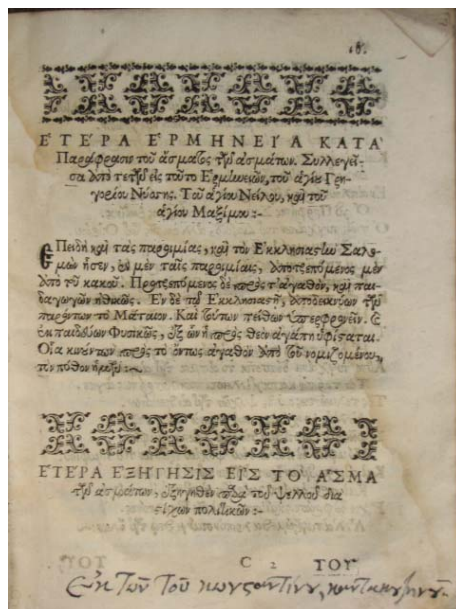 ιθ.
ἙΤΈΡΑ ἙΡΜΗΝΕΊΑ ΚΑΤᾺ
Παράφρασιν τοῦ ἄσματος τῶν ἀσμάτων. Συλλεγεῖ-
σα ἀπὸ τε τῶν εἰς τοῦτο Ἑρμηνειῶν, τοῦ ἁγίου Γρη-
γορίου Νύσσης. Τοῦ ἁγίου Νείλου, καὶ τοῦ
ἁγίου Μαξίμου :-
ἘΠειδὴ καὶ τὰς παροιμίας, καὶ τὸν Ἐκκλησιαστὴν Σαλο-
μὼν ἦσεν, ἐν μὲν ταῖς παροιμίαις, ἀποτρεπόμενος μὲν
ἀπὸ τοῦ κακοῦ. Προτρεπόμενος δὲ πρὸς τἀγαθὸν, καὶ παι-
δαγωγῶν ἠθικῶς. Ἐν δὲ τῷ Ἐκκλησιαστῇ, ἀποδεικνύων τῶν
παρόντων τὸ Μάταιον. Καὶ τούτων πείθων ὑπερφρονεῖν.
ἐκπαιδεύων Φυσικῶς, ἐξ ὧν ἡ πρὸς θεὸν ἀγάπη ὑφίσταται.
Οἷα κινούντων πρὸς τὸ ὄντως ἀγαθὸν ἀπὸ τοῦ νομιζομένου,
τὸν πόθον ἡμῶν :-
ἙΤΈΡΑ ἘΞΉΓΗΣΙΣ ΕἸΣ ΤΟ ἌΣΜΑ
τῶν ἀσμάτων, ἐξηγηθὲν παρὰ τοῦ Ψελλοῦ διὰ
στίχων πολιτικῶν :-
C 2 ΤΟΥ
Ἐκ τῶν τοῦ κωνσταντίνου καντακουζηνοῦ